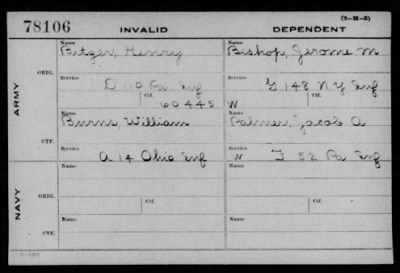 (3-H-3)
78106 INVALID DEPENDENT
Name Name
Bitzer, Henry Bishop, Jerome M
ORD. Service Service
D 110 Pa Inf G 148 N Y Inf
ARMY Ctf. Ctf.
60445 W
Name Name
Burns, William Palmer, Jacob A
CTF. Service Service
A 14 Ohio Inf W I 52 Pa Inf
Name Name
ORD.
NAVY Ctf. Ctf.
Name Name
CTF.